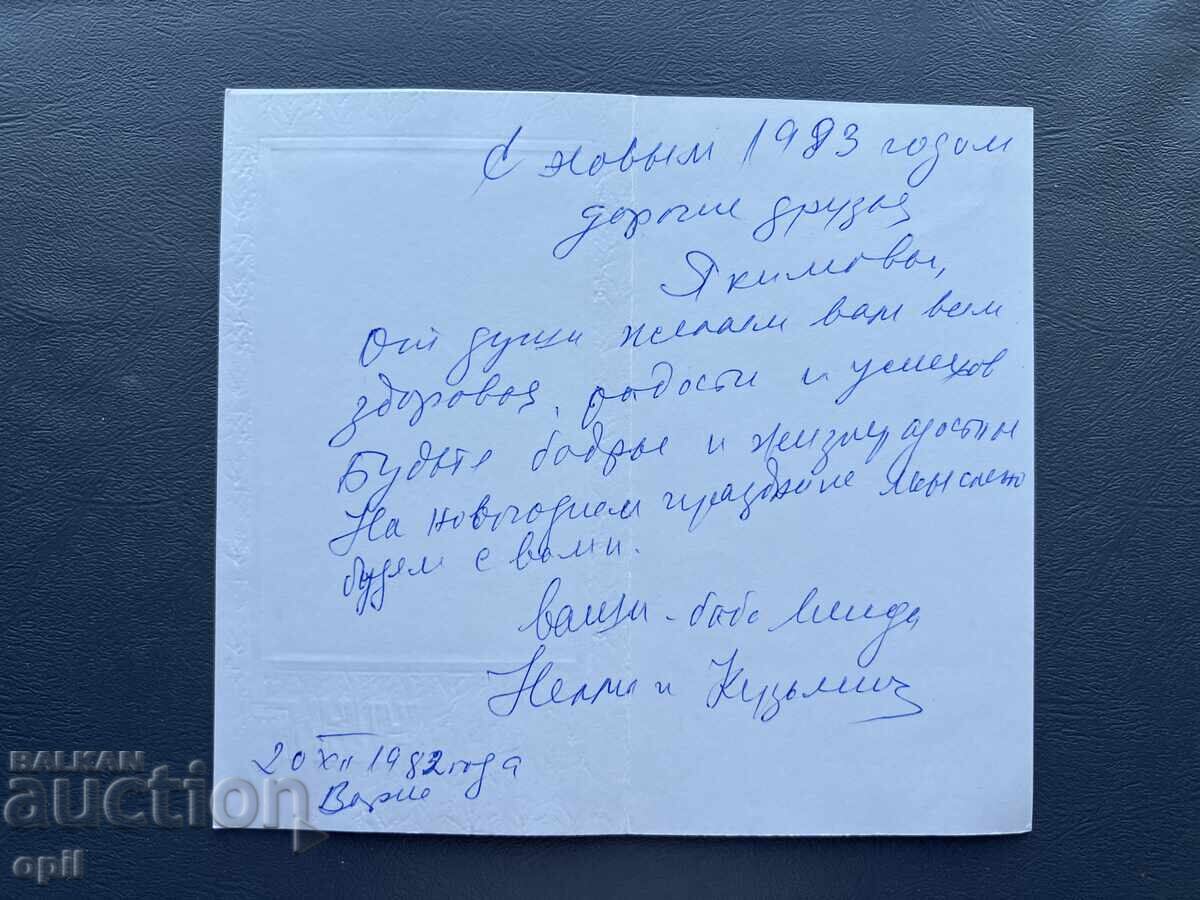 С Новым 1983 годом
дорогие друзья
Якимовы,
От души желаем вам всем
здоровья, радости и успехов
Будьте бодры и жизнерадостны
На новогоднем празднике мысленно
будем с вами.
ваши - баба Лида
Нелли и Кузьмич
20 XII 1982 года
Варна
BALKAN
auction
opil